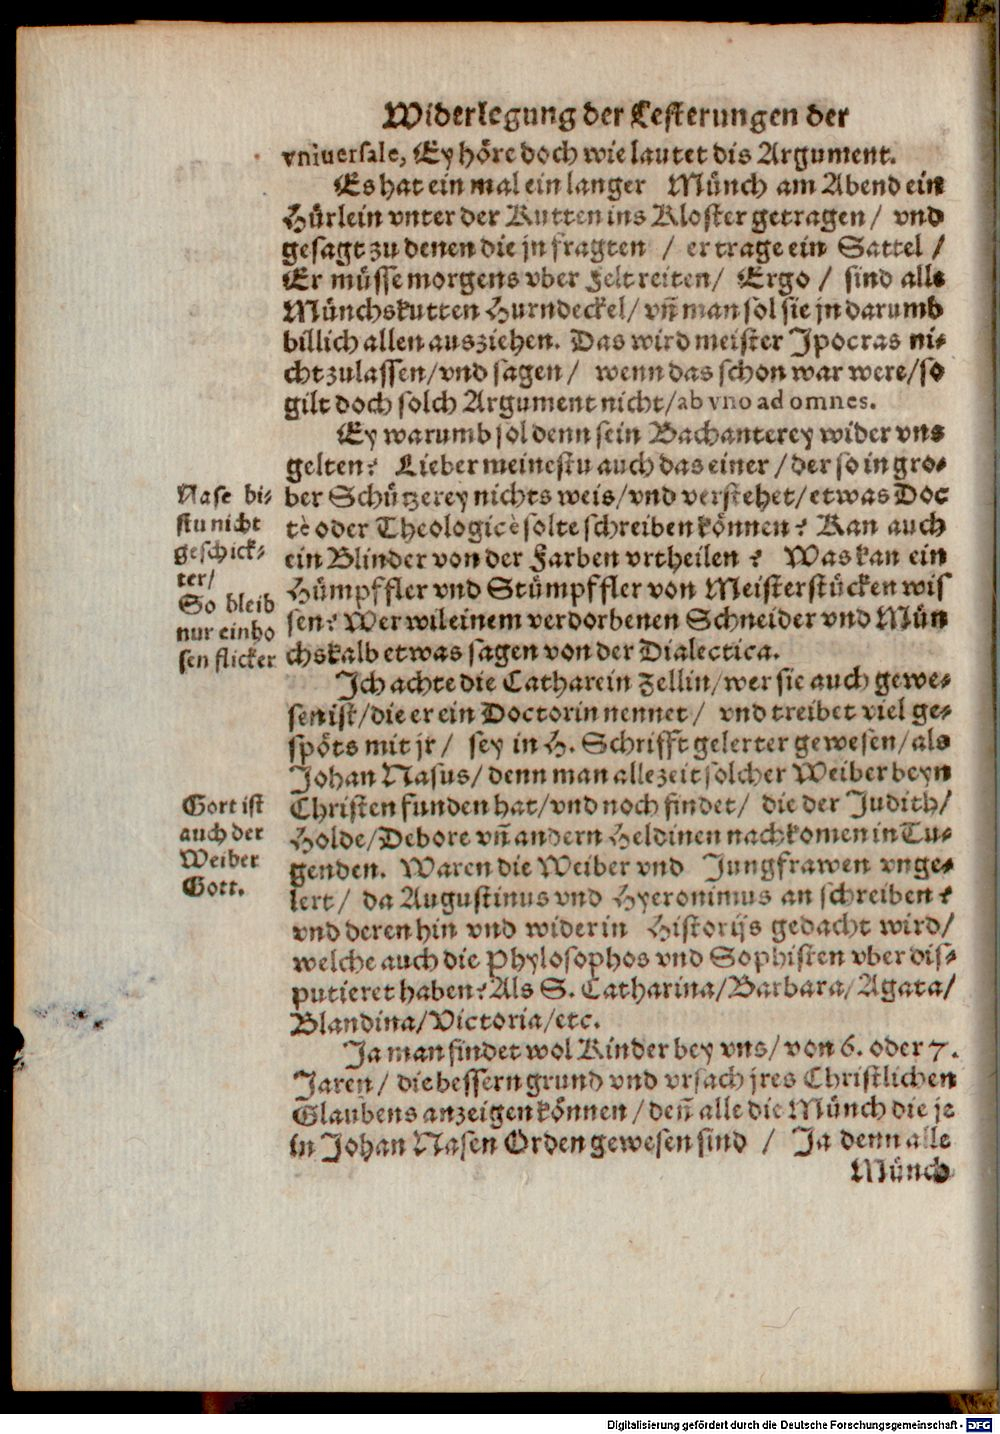 Widerlegung der Lesterungen der
vniuersale, Ey höre doch wie lautet dis Argument.
Es hat ein mal ein langer Münch am Abend ein
Hürlein vnter der Kutten ins Kloster getragen / vnd
gesagt zu denen die jn fragten / er trage ein Sattel /
Er müsse morgens vber Felt reiten / Ergo / sind alle
Münchskutten Hurndeckel / vn̄ man sol sie jn darumb
billich allen ausziehen. Das wird meister Ipocras ni-
cht zulassen / vnd sagen / wenn das schon war were / so
gilt doch solch Argument nicht / ab vno ad omnes.
Ey warumb sol denn sein Bachanterey wider vns
gelten? Lieber meinestu auch das einer / der so in gro-
ber Schützerey nichts weis / vnd verstehet / etwas Doc
tè oder Theologicè solte schreiben können? Kan auch
ein Blinder von der Farben vrtheilen? Was kan ein
Hümpffler vnd Stümpffler von Meisterstücken wis
sen? Wer wil einem verdorbenen Schneider vnd Mün
chskalb etwas sagen von der Dialectica.
Nase bi-
stu nicht
geschick-
ter /
So bleib
nur ein ho
sen flicker
Ich achte die Catharein Zellin / wer sie auch gewe-
sen ist / die er ein Doctorin nennet / vnd treibet viel ge-
spöts mit jr / sey in H. Schrifft gelerter gewesen / als
Johan Nasus / denn man allezeit solcher Weiber beyn
Christen funden hat / vnd noch findet / die der Judith /
Holde / Debore vn̄ andern Heldinen nachkomen in Tu-
genden. Waren die Weiber vnd Jungfrawen vnge-
lert / da Augustinus vnd Hyeronimus an schreiben?
vnd deren hin vnd wider in Historijs gedacht wird /
welche auch die Phylosophos vnd Sophisten vber dis-
putieret haben? Als S. Catharina / Barbara / Agata /
Blandina / Victoria / etc.
Gott ist
auch der
Weiber
Gott.
Ja man findet wol Kinder bey vns / von 6. oder 7.
Jaren / die bessern grund vnd vrsach jres Christlichen
Glaubens anzeigen können / den̄ alle die Münch die je
in Johan Nasen Orden gewesen sind / Ja denn alle
Münch
Digitalisierung gefördert durch die Deutsche Forschungsgemeinschaft - DFG